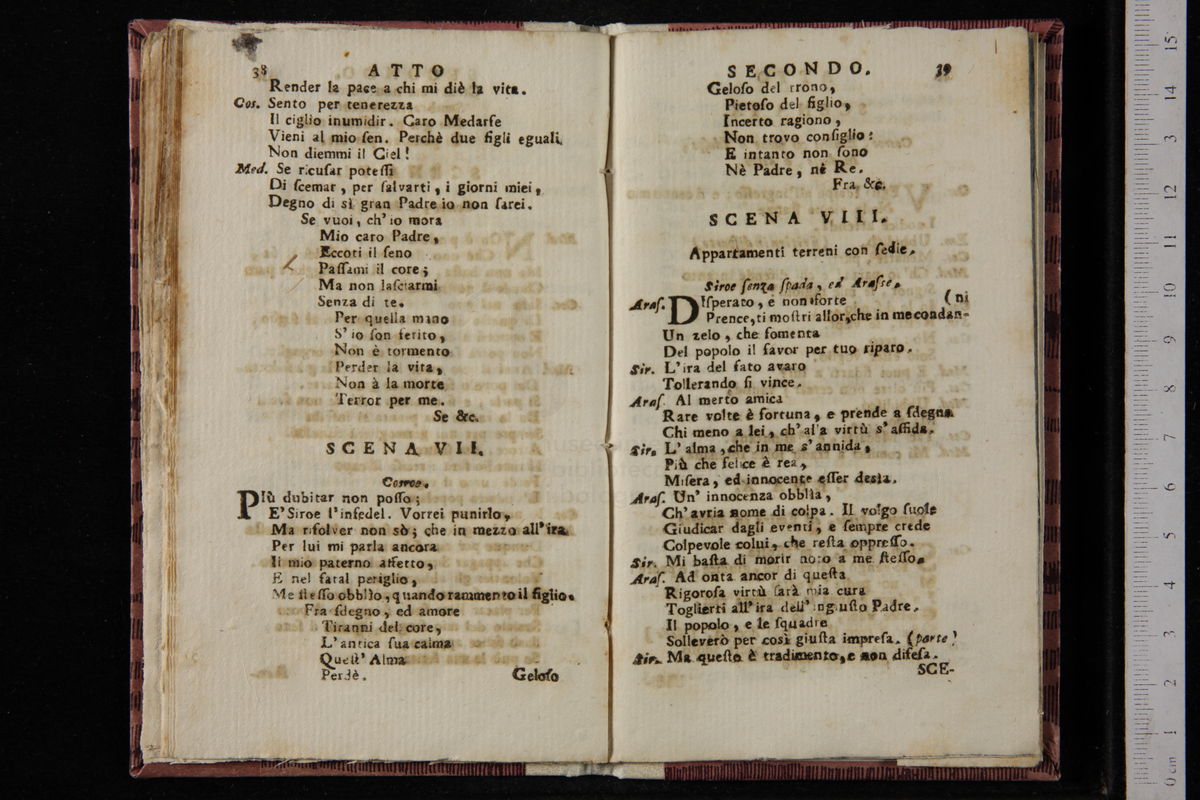 38 ATTO
Render la pace a chi mi diè la vita.
Cos. Sento per tenerezza
Il ciglio inumidir. Caro Medarse
Vieni al mio ſen. Perchè due figli eguali
Non diemmi il Ciel!
Med. Se ricuſar poteſſi
Di ſcemar, per ſalvarti, i giorni miei,
Degno di sì gran Padre io non ſarei.
Se vuoi, ch' io mora
Mio caro Padre,
Eccoti il ſeno
Paſſami il core;
Ma non laſciarmi
Senza di te.
Per quella mano
S' io ſon ferito,
Non è tormento
Perder la vita,
Non à la morte
Terror per me.
Se &c.
SCENA VII.
Cosroe.
PIù dubitar non poſſo;
E' Siroe l'infedel. Vorrei punirlo,
Ma riſolver non sò; che in mezzo all'ira
Per lui mi parla ancora
Il mio paterno affetto,
E nel fatal periglio,
Me ſteſſo obblìo, quando rammento il figlio.
Fra ſdegno, ed amore
Tiranni del core,
L'antica ſua calma
Queſt' Alma
Perdè.
Geloſo
SECONDO. 39
Geloſo del trono,
Pietoſo del figlio,
Incerto ragiono,
Non trovo conſiglio:
E intanto non ſono
Nè Padre, nè Re.
Fra &c.
SCENA VIII.
Appartamenti terreni con ſedie.
Siroe ſenza ſpada, ed Araſſe.
Araſ. DIſperato, e non forte (ni
Prence, ti moſtri allor, che in me condan-
Un zelo, che fomenta
Del popolo il favor per tuo riparo.
Sir. L'ira del fato avaro
Tollerando ſi vince.
Araſ. Al merto amica
Rare volte è fortuna, e prende a ſdegno
Chi meno a lei, ch' al'a virtù s' affida.
Sir. L' alma, che in me s' annida,
Più che felice è rea,
Miſera, ed innocente eſſer desìa.
Araſ. Un' innocenza obblìa,
Ch' avria nome di colpa. Il volgo ſuole
Giudicar dagli eventi, e ſempre crede
Colpevole colui, che reſta oppreſſo.
Sir. Mi baſta di morir noto a me ſteſſo.
Araſ. Ad onta ancor di queſta
Rigoroſa virtù ſarà mia cura
Toglierti all' ira dell' ingiuſto Padre.
Il popolo, e le ſquadre
Solleverò per così giuſta impreſa. (parte)
Sir. Ma queſto è tradimento, e non difeſa.
SCE-